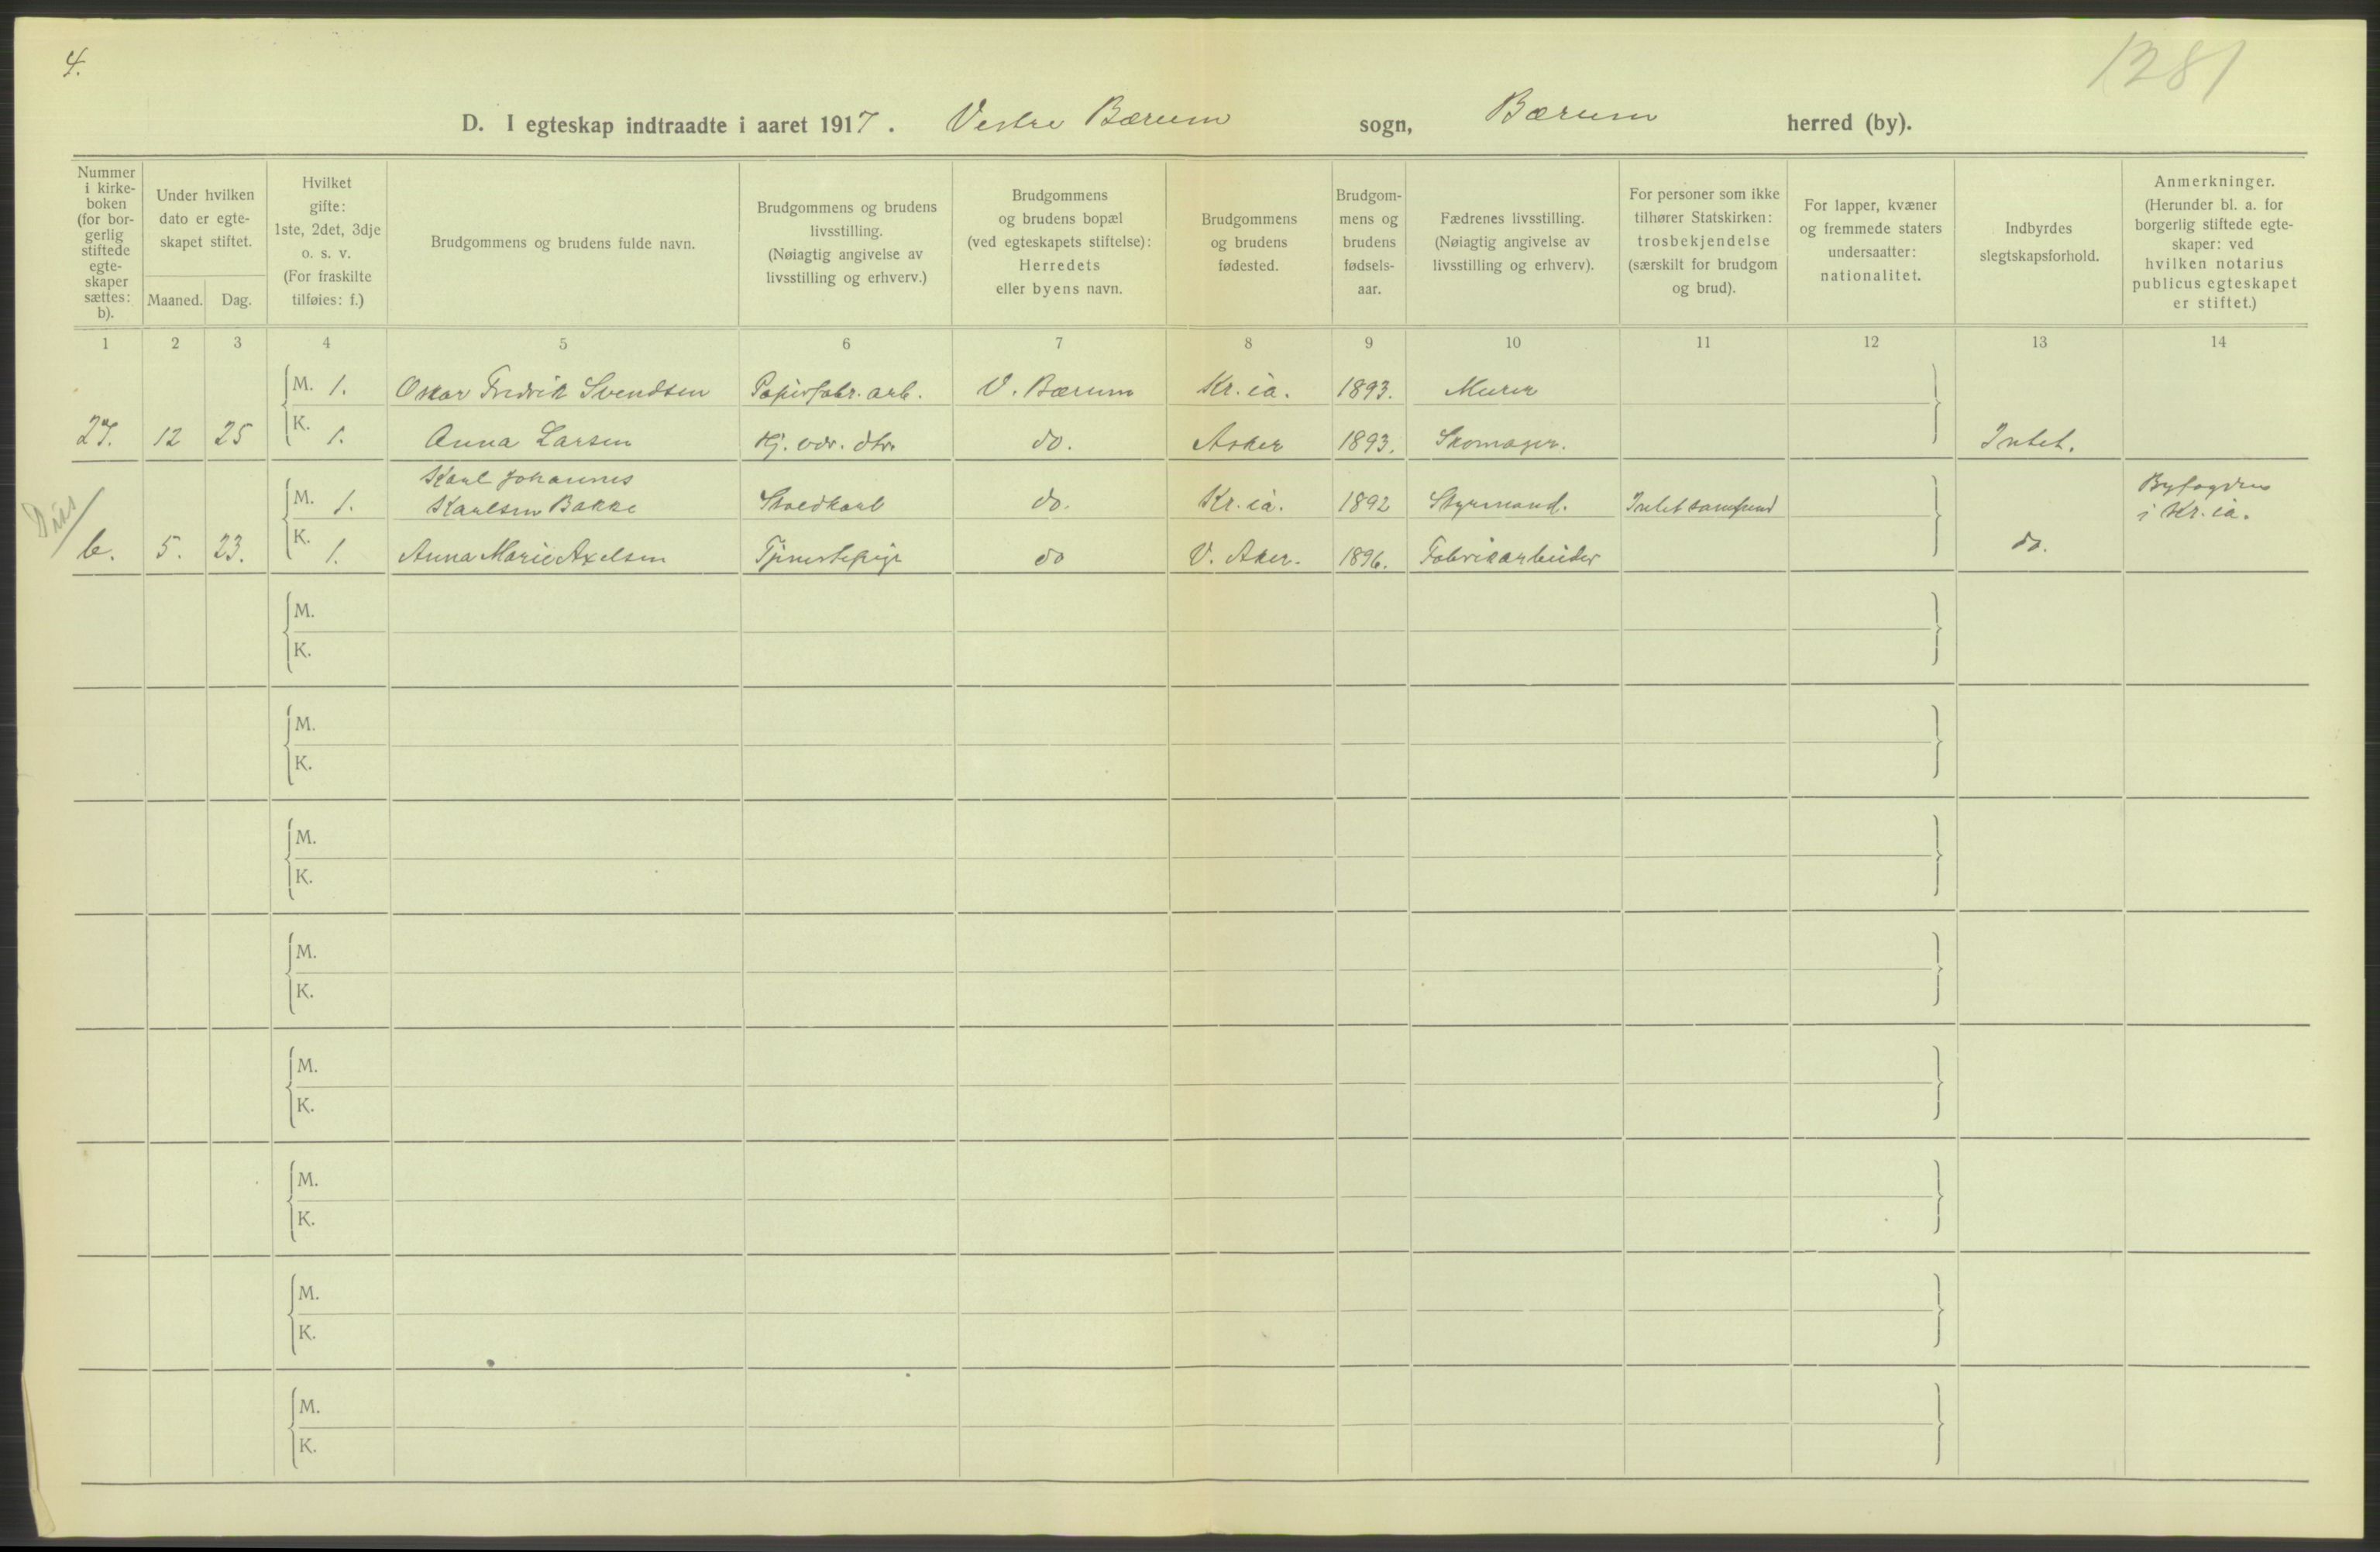 4.
1281
D. I egteskap indtraadte i aaret 1917. Vestre Bærum sogn, Bærum herred (by).
Nummer i kirke-boken (for bor-gerlig stiftede egte-skaper sættes: b).
Under hvilken dato er egte-skapet stiftet.
Maaned. Dag.
Hvilket gifte: 1ste, 2det, 3dje o. s. v. (For fraskilte tilføies: f.)
Brudgommens og brudens fulde navn.
Brudgommens og brudens livsstilling. (Nøiagtig angivelse av livsstilling og erhverv.)
Brudgommens og brudens bopæl (ved egteskapets stiftelse): Herredets eller byens navn.
Brudgommens og brudens fødested.
Brudgom-mens og brudens fødsels-aar.
Fædrenes livsstilling. (Nøiagtig angivelse av livsstilling og erhverv).
For personer som ikke tilhører Statskirken: trosbekjendelse (særskilt for brudgom og brud).
For lapper, kvæner og fremmede staters undersaatter: nationalitet.
Indbyrdes slegtskapsforhold.
Anmerkninger. (Herunder bl. a. for borgerlig stiftede egte-skaper: ved hvilken notarius publicus egteskapet er stiftet.)
1 2 3 4 5 6 7 8 9 10 11 12 13 14
M. 1. Oskar Fredrik Svendsen Papirfabr. arb. V. Bærum Kr.ia. 1893. Murer
27. 12 25 K. 1. Anna Larsen Kj. adr. dtr. do. Asker 1893. Skomager. Intet.
Karl Johannes
M. 1. Karlsen Bakke Staldkarl do. Kr.ia. 1892 Styrmand. Intet samfund Byfogden
i Kr.ia.
b. 5. 23. K. 1. Anna Marie Axelsen Tjenestepige do V. Aker. 1896. Fabrikarbeider do.
M.
K.
M.
K.
M.
K.
M.
K.
M.
K.
M.
K.
M.
K.
M.
K.